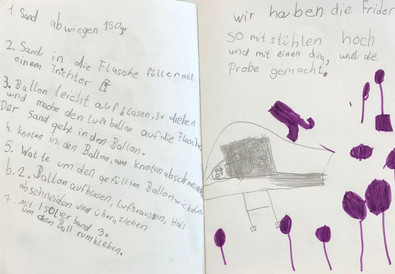 1. Sand abwiegen 150gr
2. Sand in die Flasche füllen mit
einem Trichter
3. Ballon leicht aufblasen, 3x drehen
und mache den Luftballon auf die Flasche
Der Sand geht in den Ballon.
4. Knoten in den Ballon, am Knoten abschneiden
5. Watte um den gefüllten Ballon wickeln
6. 2. Ballon aufblasen, Luft rauslassen, Hals
abschneiden und überziehen
7. Mit Isolierband 3x
um den Ball rumkleben.
wir haben die Frider
so mit stühlen hoch
und mit einen ding, und die
Probe gemacht.